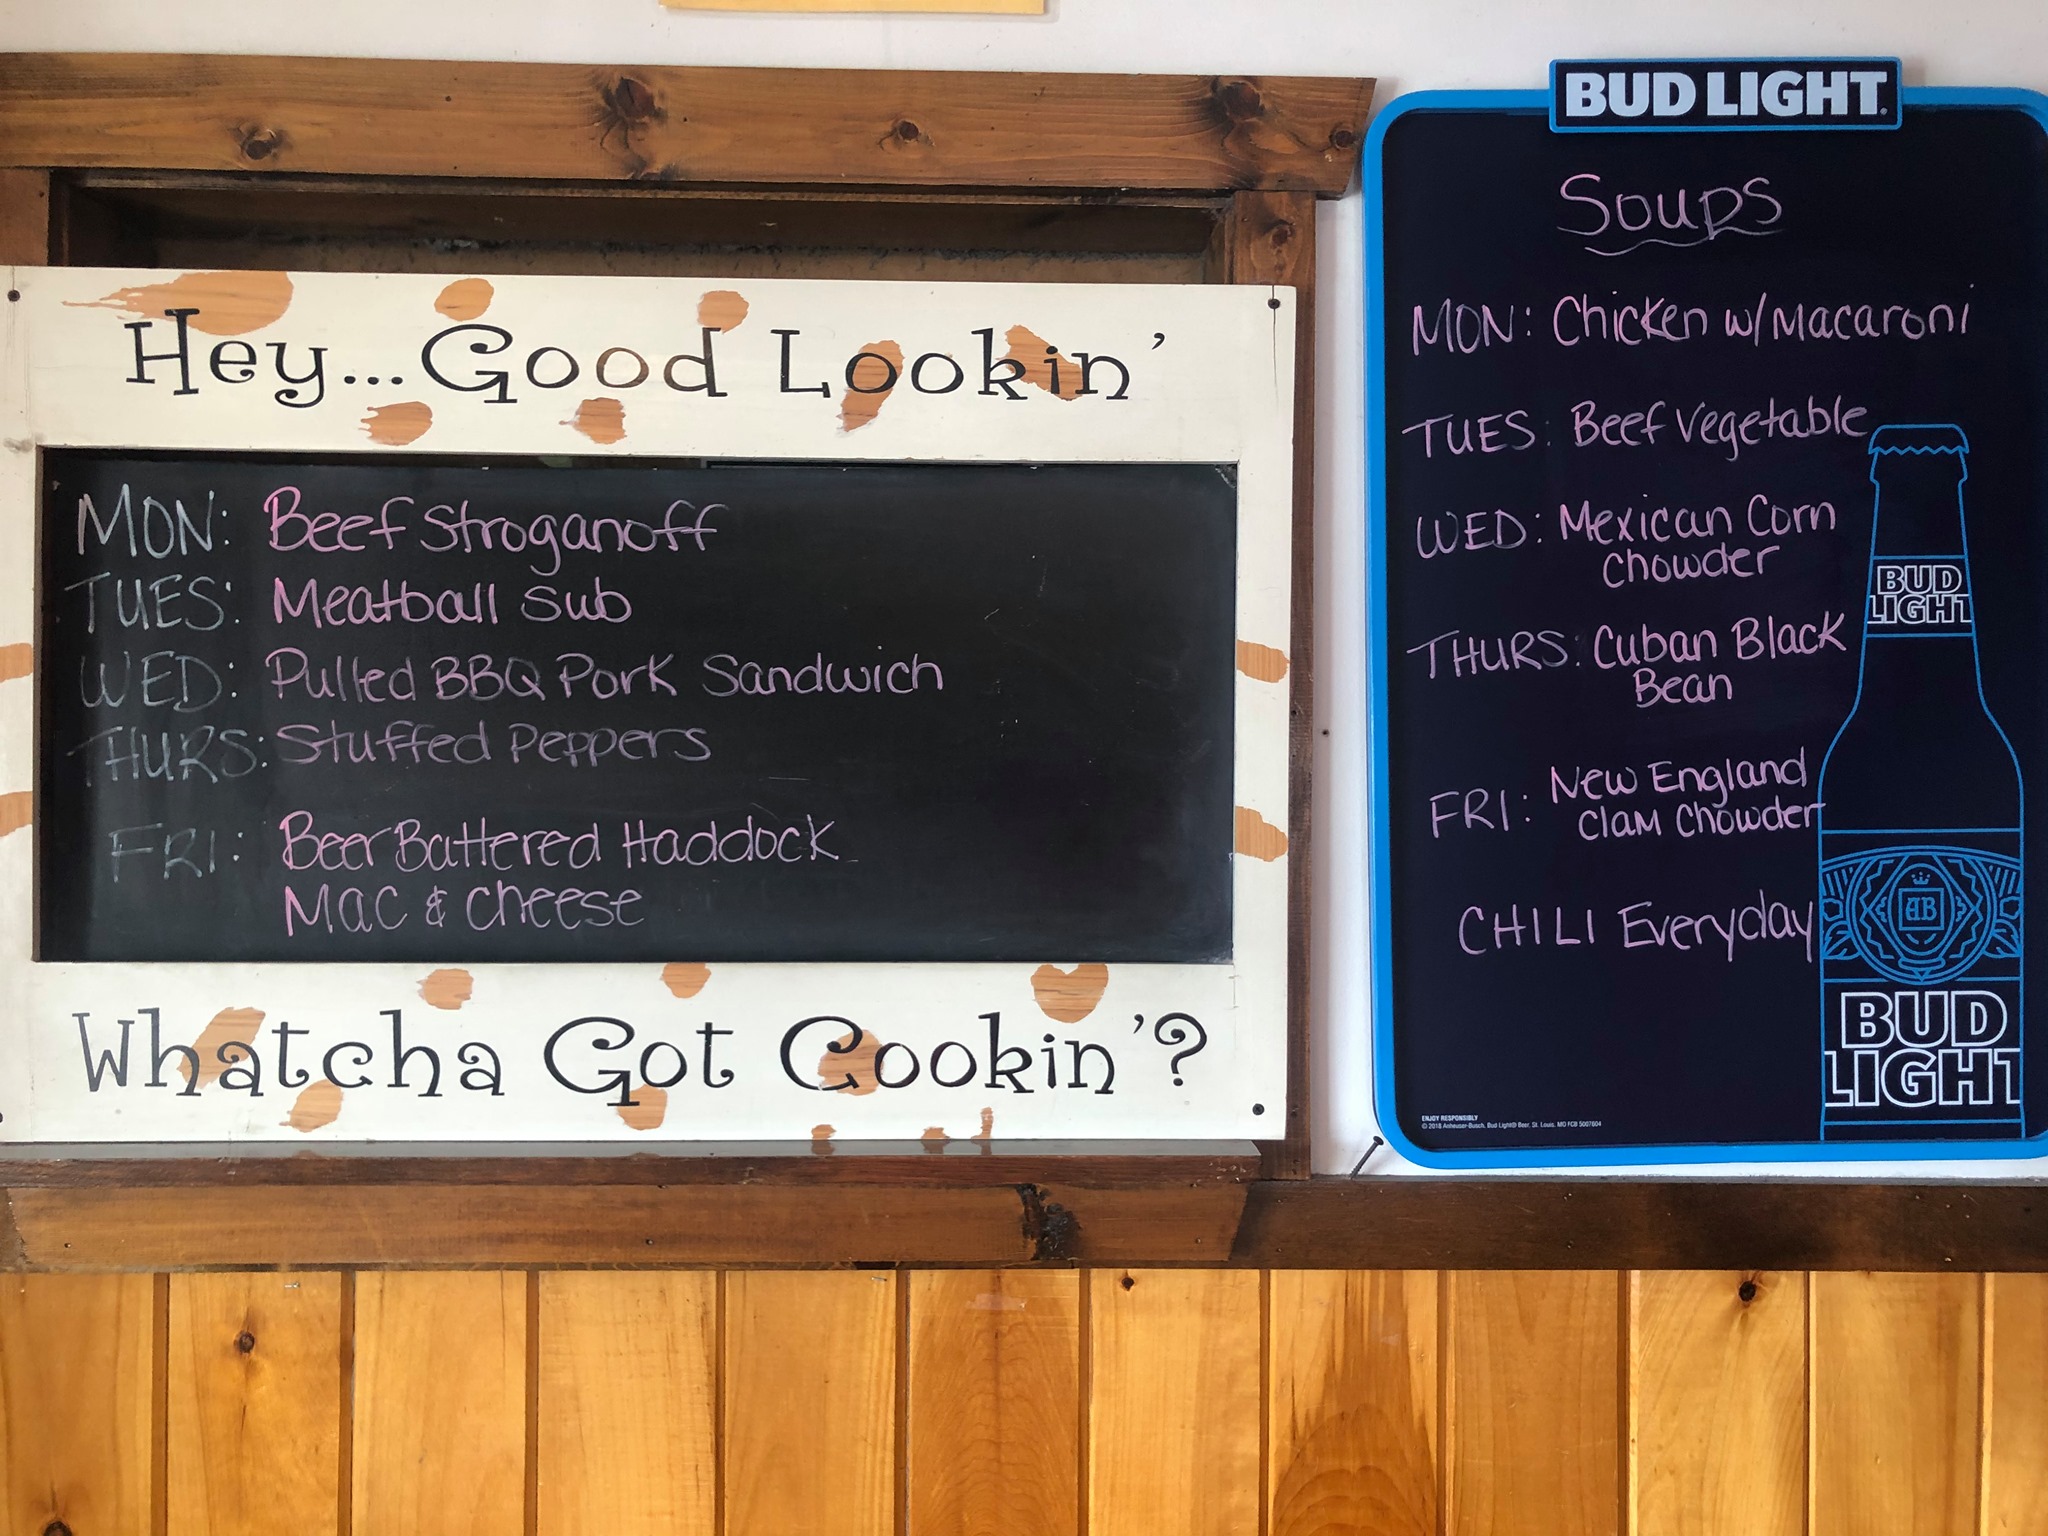 Hey...Good Lookin'
MON: Beef Stroganoff
TUES: Meatball Sub
WED: Pulled BBQ Pork Sandwich
THURS: Stuffed Peppers
FRI: Beer Battered Haddock
Mac & Cheese
Whatcha Got Cookin'?
BUD LIGHT.
Soups
MON: Chicken w/Macaroni
TUES: Beef Vegetable
WED: Mexican Corn
Chowder
THURS: Cuban Black
Bean
FRI: New England
Clam Chowder
CHILI Everyday
BUD
LIGHT
AB
BUD
LIGHT
ENJOY RESPONSIBLY
© 2018 Anheuser-Busch, Bud Light® Beer, St. Louis, MO FCB 5007604